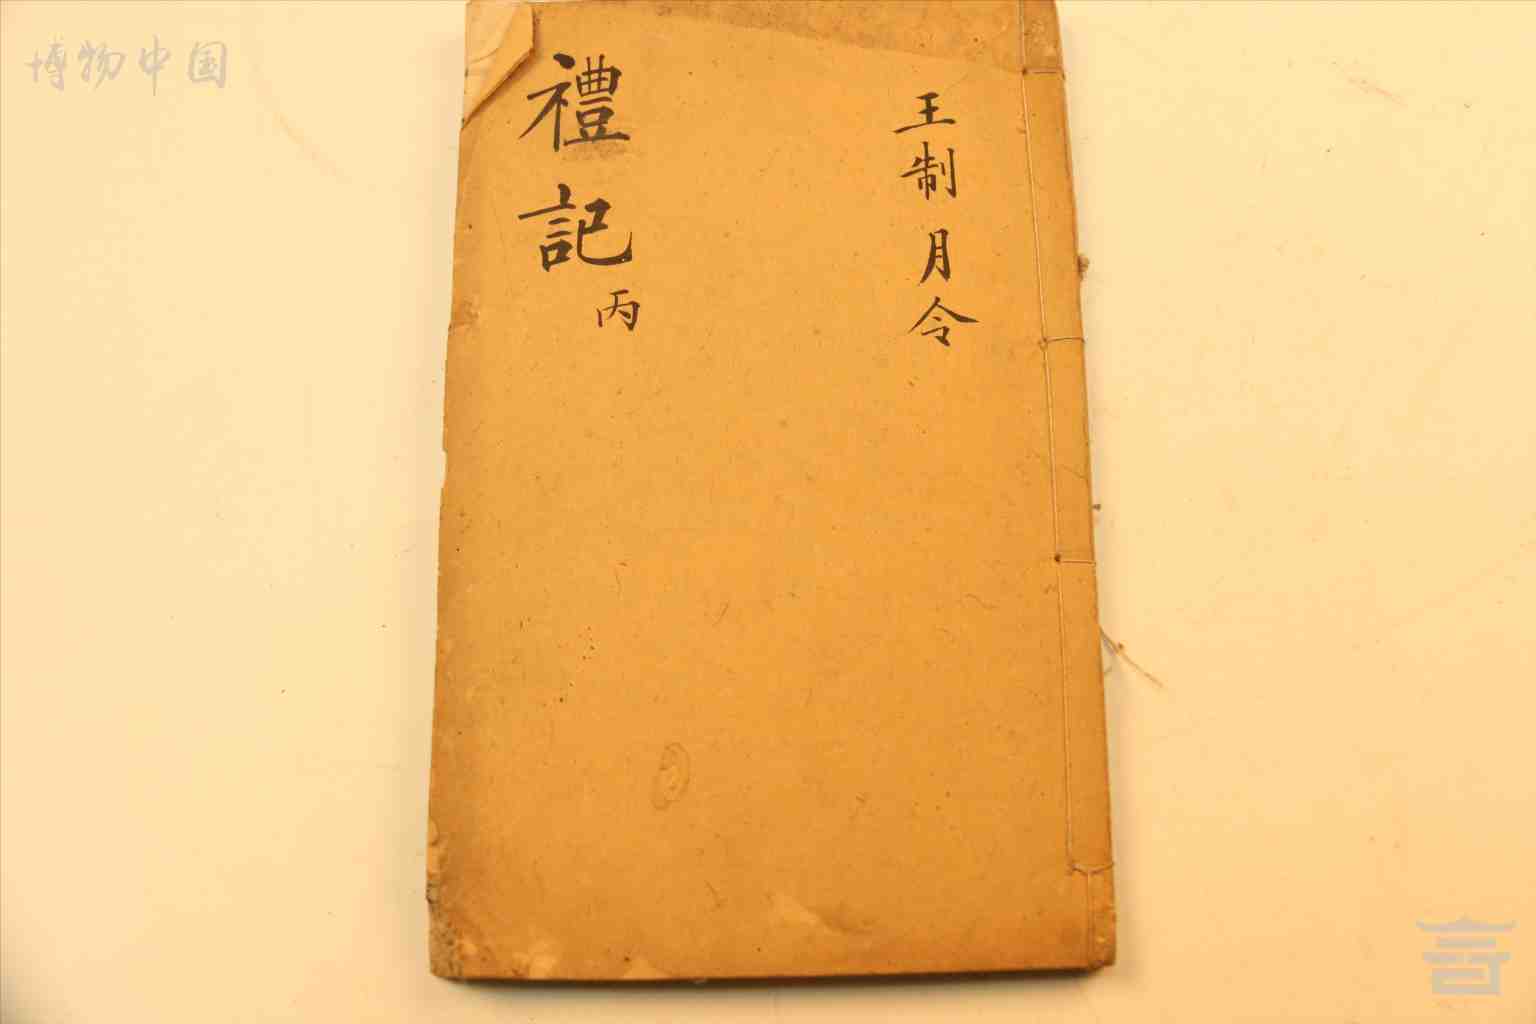 博物中国
禮記 丙
王制 月令